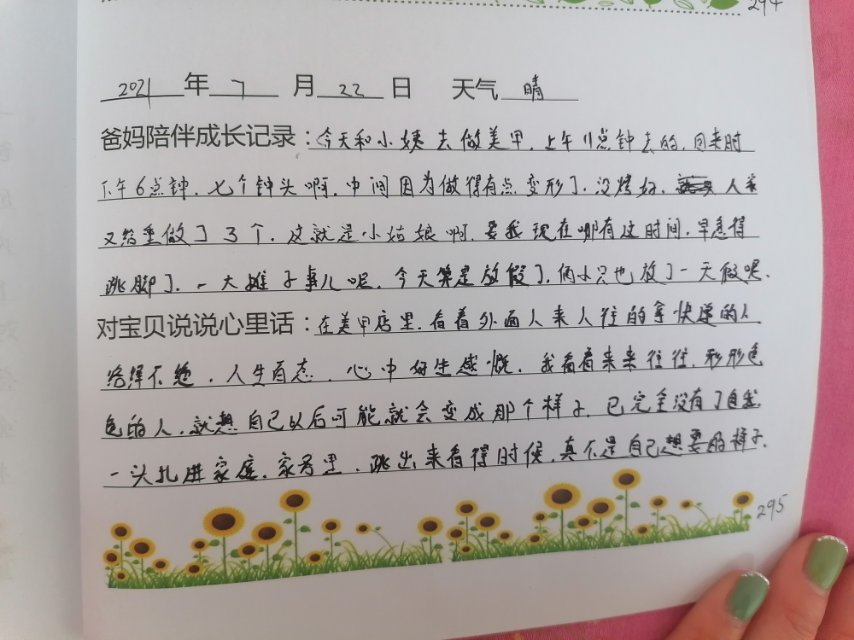 294
2021 年 7 月 22 日 天气 晴
爸妈陪伴成长记录：今天和小姨去做美甲，上午11点钟去的，回来时
下午6点钟，七个钟头啊，中间因为做得有点变形了，没烤好，人家
又给重做了3个，这就是小姑娘啊，要我现在哪有这时间，早急得
跳脚了，一大摊子事儿呢，今天算是放假了，俩小只也放了一天假呢.
对宝贝说说心里话：在美甲店里，看着外面人来人往的拿快递的人
络绎不绝，人生百态，心中好生感慨，我看着来来往往，形形色
色的人，就想自己以后可能就会变成那个样子，已完全没有了自我，
一头扎进家庭，家务里，跳出来看得时候，真不是自己想要的样子.
295